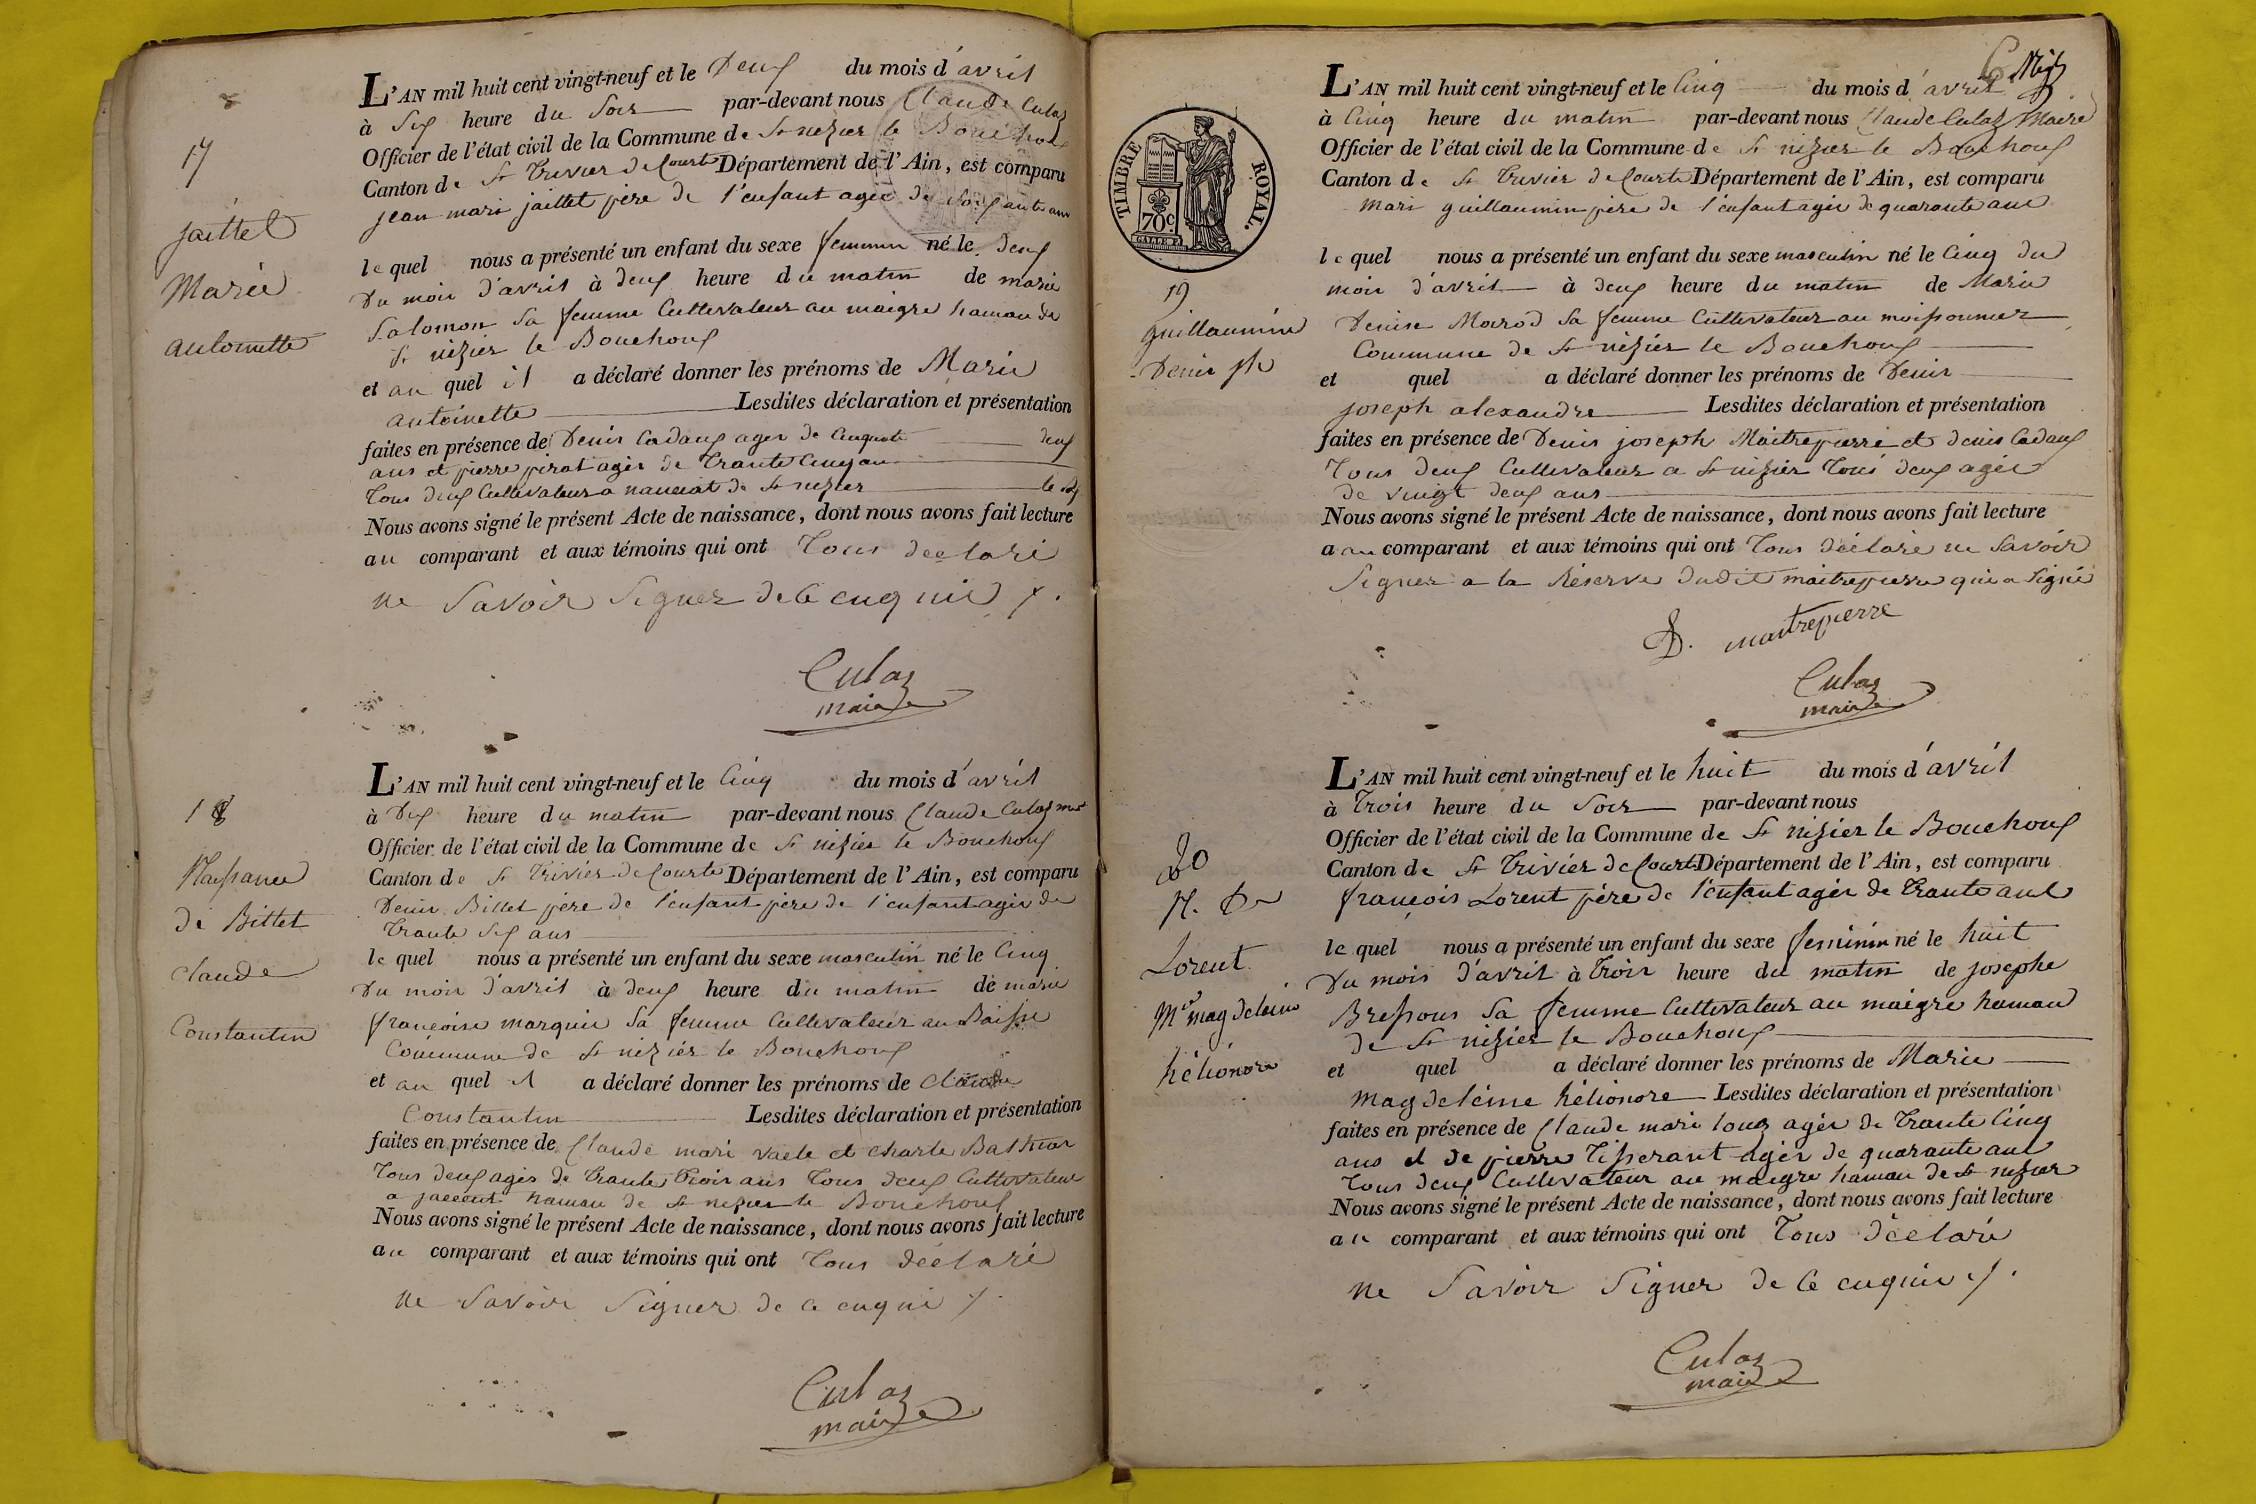 17
jaillet
Marie
antoinette
L'AN mil huit cent vingt-neuf et le Deux du mois d'avril
à Six heure du Soir par-devant nous Claude Culaz
Officier de l'état civil de la Commune de St nizier le Bouchoux
Canton de St Trivier de Courte Département de l'Ain, est comparu
jean mari jaillet père de l'enfant agée de Soixante ans
le quel nous a présenté un enfant du sexe feminin né le Deux
Du mois d'avril à deux heure du matin de marie
Salomon Sa femme Cultivateur au maigre hamau de
St nizier le Bouchoux
et au quel il a déclaré donner les prénoms de Marie
antoinette Lesdites déclaration et présentation
faites en présence de Denis Cadaux ager de Cinquante deux
ans et pierre pirat agér de Trante Cinq an
Tous deux Cultivateur a nanciat de St nizier le
Nous avons signé le présent Acte de naissance, dont nous avons fait lecture
au comparant et aux témoins qui ont Tous déclaré
ne Savoir Signer de Ce enquie
Culaz
maire
18
Naissance
de Billet
claude
Constantin
L'AN mil huit cent vingt-neuf et le Cinq du mois d'avril
à Dix heure du matin par-devant nous Claude Culaz
Officier de l'état civil de la Commune de St nizier le Bouchoux
Canton de St Trivier de Courte Département de l'Ain, est comparu
Denis Billet père de l'enfant père de l'enfant agér de
Trante Six ans
le quel nous a présenté un enfant du sexe masculin né le Cinq
Du mois d'avril à deux heure du matin de marie
françoise marguin Sa femme Cultivateur au Baisse
Commune de St nizier le Bouchoux
et au quel il a déclaré donner les prénoms de claude
Constantin Lesdites déclaration et présentation
faites en présence de Claude mari et charle
Tous deux agés de Trante Trois ans Tous deux Cultivateur
a hamau de St nizier le Bouchoux
Nous avons signé le présent Acte de naissance, dont nous avons fait lecture
au comparant et aux témoins qui ont Tous déclaré
ne Savoir Signer de ce enqui
Culaz
maire
6
TIMBRE ROYAL.
70c
19
guillaumin
Denis
L'AN mil huit cent vingt-neuf et le Cinq du mois d'avril
à Cinq heure du matin par-devant nous Claude Culaz Maire
Officier de l'état civil de la Commune de St nizier le Bouchoux
Canton de St Trivier de Courte Département de l'Ain, est comparu
Mari guillaumin père de l'enfant agér de quarante ans
le quel nous a présenté un enfant du sexe masculin né le Cinq du
mois d'avril à deux heure du matin de Marie
Denise Marod Sa femme Cultivateur au moissonnier
Commune de St nizier le Bouchoux
et quel a déclaré donner les prénoms de Denis
joseph alexandre Lesdites déclaration et présentation
faites en présence de Denis joseph Maitrepierre et denis Cadaux
Tous deux Cultivateur a St nizier Tous deux agér
de vingt deux ans
Nous avons signé le présent Acte de naissance, dont nous avons fait lecture
a au comparant et aux témoins qui ont Tous déclaré ne Savoir
Signer a la Réserve dudit maitrepierre qui a Signé
D. maitrepierre
Culaz
maire
20
N. De
Lorent
Mie magdeleine
hélionore
L'AN mil huit cent vingt-neuf et le huit du mois d'avril
à Trois heure du Soir par-devant nous
Officier de l'état civil de la Commune de St nizier le Bouchoux
Canton de St Trivier de Courte Département de l'Ain, est comparu
françois Lorent père de l'enfant agér de Trante ans
le quel nous a présenté un enfant du sexe feminin né le huit
Du mois d'avril à Trois heure du matin de josephe
Bressoux Sa femme Cultivateur au maigre hamau
de St nizier le Bouchoux
et quel a déclaré donner les prénoms de Marie
magdeleine hélionore Lesdites déclaration et présentation
faites en présence de Claude mari long agér de Trante Cinq
ans et de pierre Tisserant agér de quarante ans
Tous deux Cultivateur au maigre hamau de St nizier
Nous avons signé le présent Acte de naissance, dont nous avons fait lecture
au comparant et aux témoins qui ont Tous déclaré
ne Savoir Signer de Ce enquie
Culaz
maire